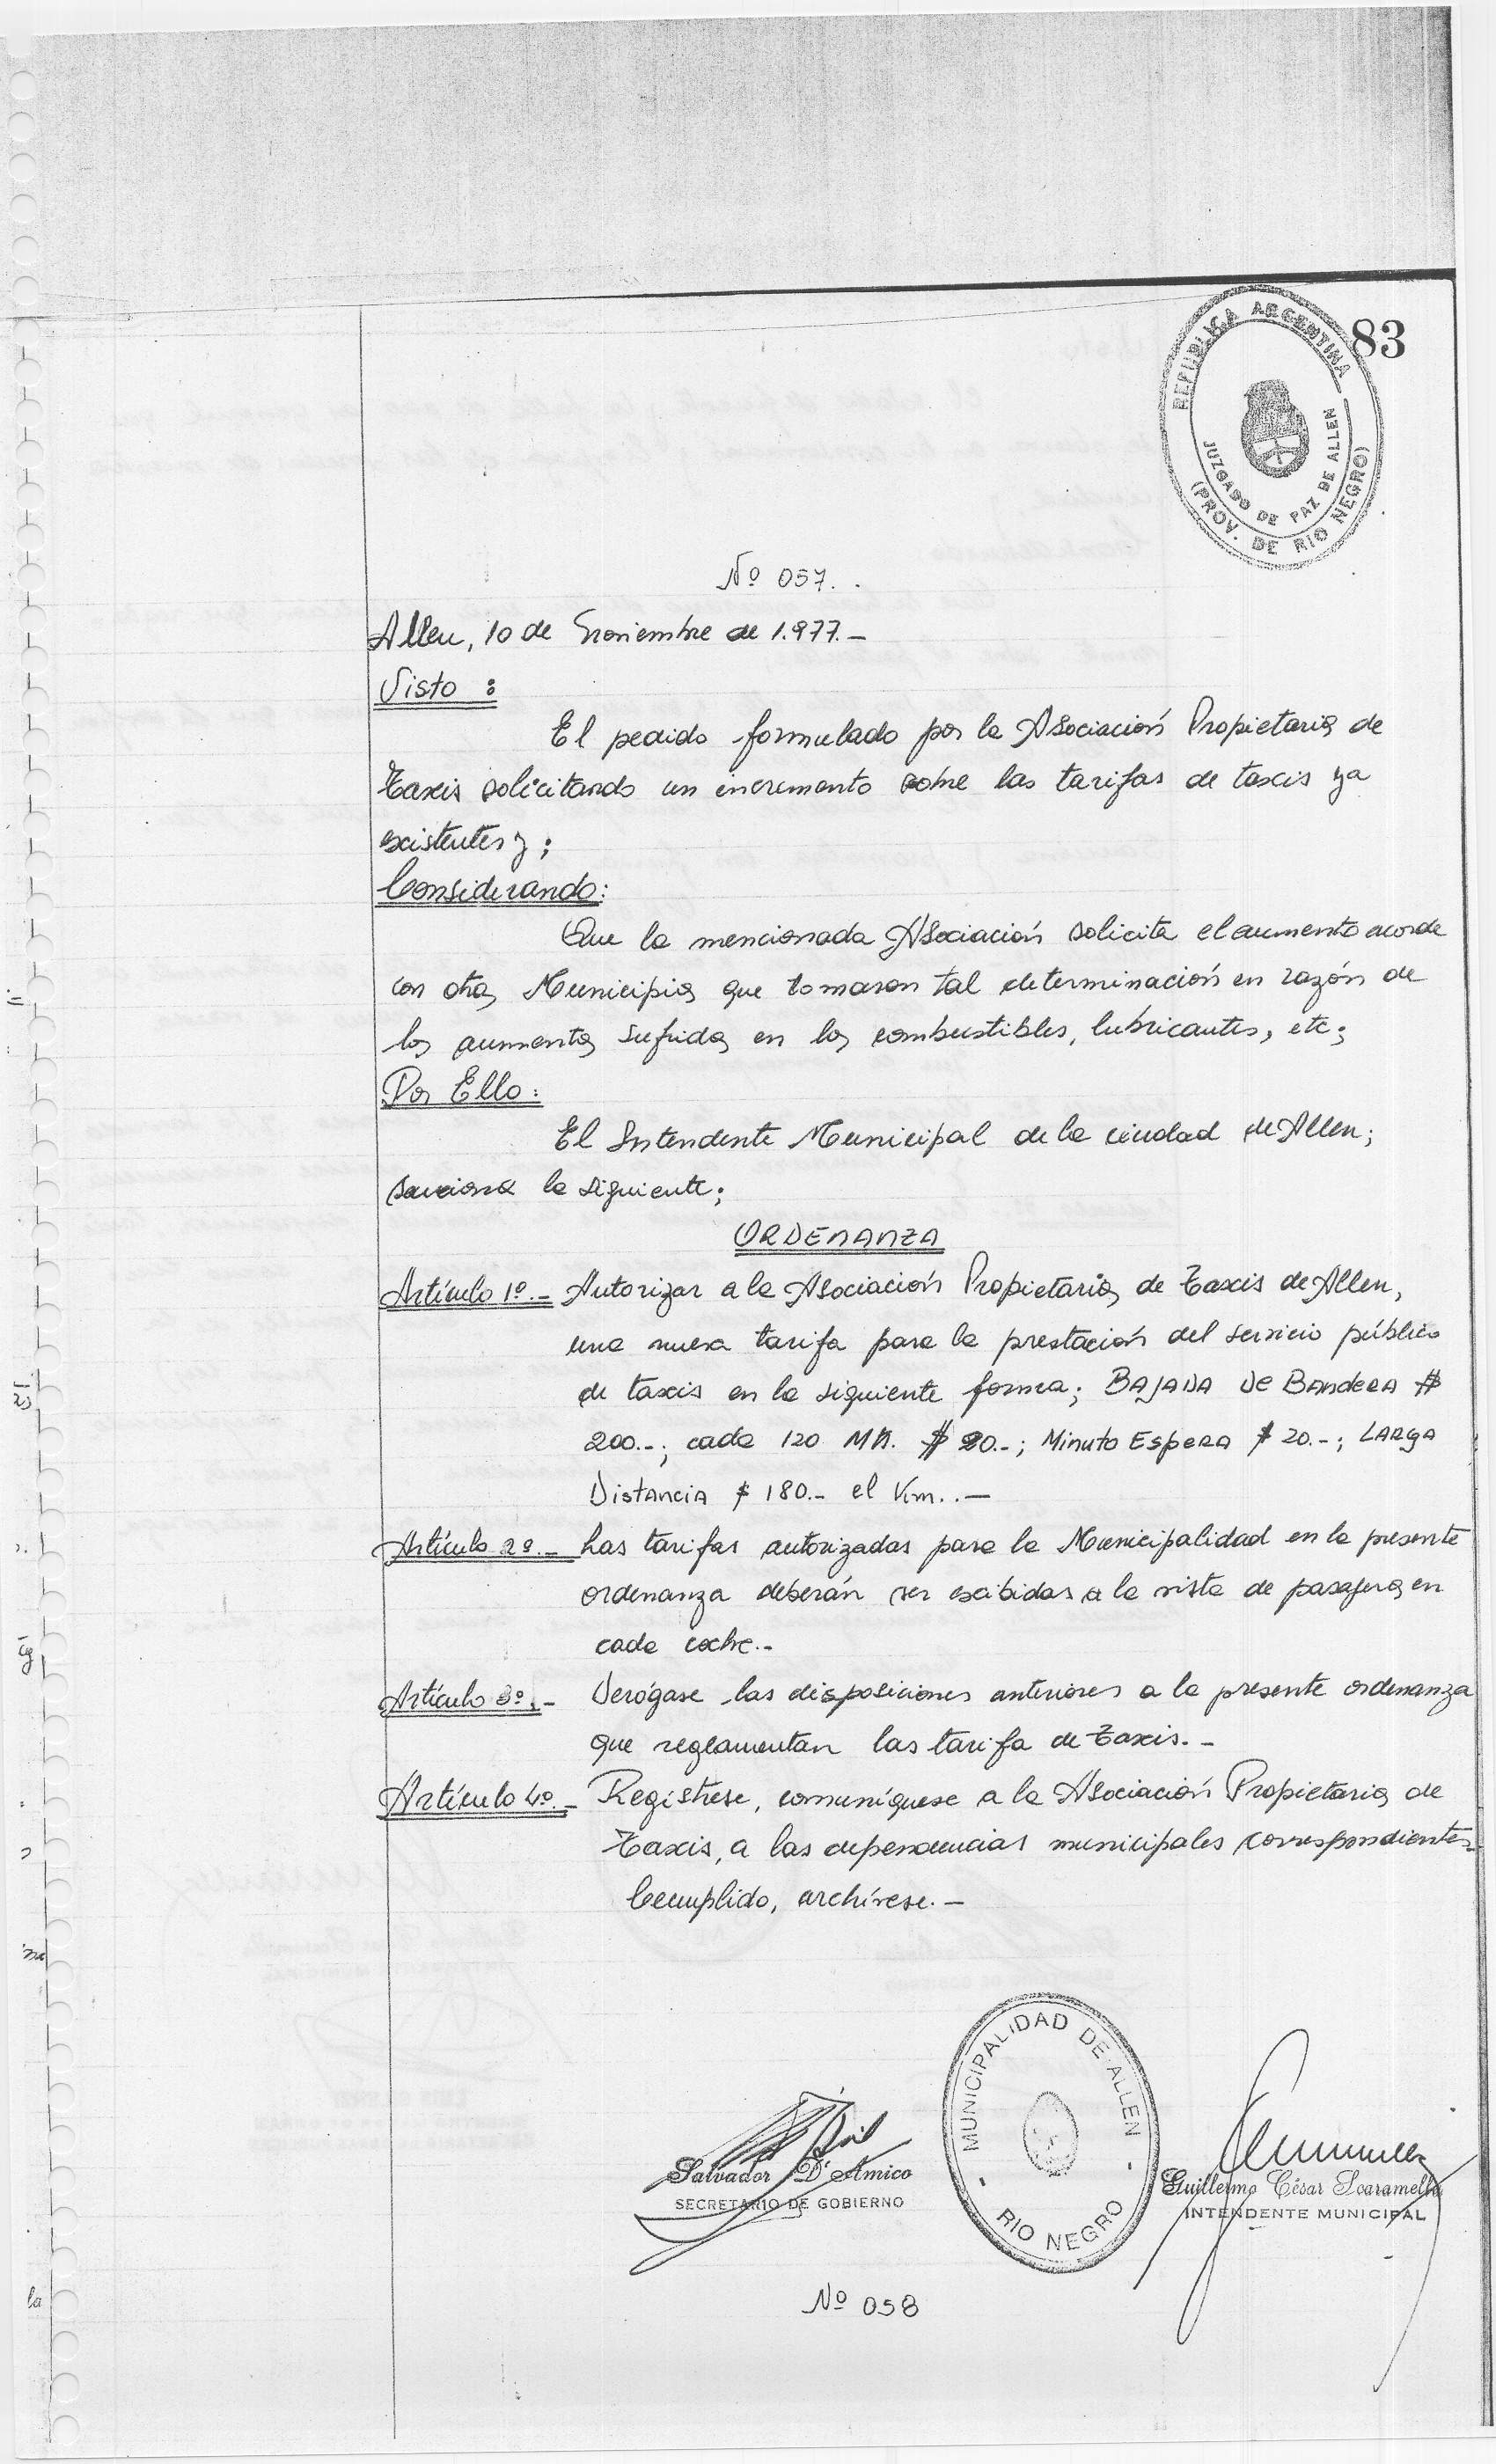 83
REPUBLICA ARGENTINA
JUZGADO DE PAZ DE ALLEN
(PROV. DE RIO NEGRO)
Nº 057.
Allen, 10 de Noviembre de 1.977.-
Visto :
El pedido formulado por la Asociación Propietarios de
Taxis solicitando un incremento sobre las tarifas de taxis ya
existentes y;
Considerando:
Que la mencionada Asociación solicita el aumento acorde
con otros Municipios que tomaron tal determinación en razón de
los aumentos sufridos en los combustibles, lubricantes, etc;
Por Ello:
El Intendente Municipal de la ciudad de Allen;
sanciona la siguiente;
ORDENANZA
Artículo 1º.- Autorizar a la Asociación Propietarios de Taxis de Allen,
una nueva tarifa para la prestación del servicio público
de taxis en la siguiente forma; BAJADA De BANDERA $
200.-; cada 120 Mts. $ 20.-; Minuto EsperA $ 20.-; LARgA
DistAnciA $ 180.- el Km..-
Artículo 2º.- Las tarifas autorizadas para la Municipalidad en la presente
ordenanza deberán ser exibidas a la vista de pasajeros en
cada coche.-
Artículo 3º.- Derógase las disposiciones anteriores a la presente ordenanza
que reglamentan las tarifa de Taxis.-
Artículo 4º.- Regístrese, comuníquese a la Asociación Propietarios de
Taxis, a las dependencias municipales correspondientes.
Cumplido, archívese.-
MUNICIPALIDAD DE ALLEN
- RIO NEGRO -
Salvador D'Amico
SECRETARIO DE GOBIERNO
Guillermo César Scaramella
INTENDENTE MUNICIPAL
Nº 058
la